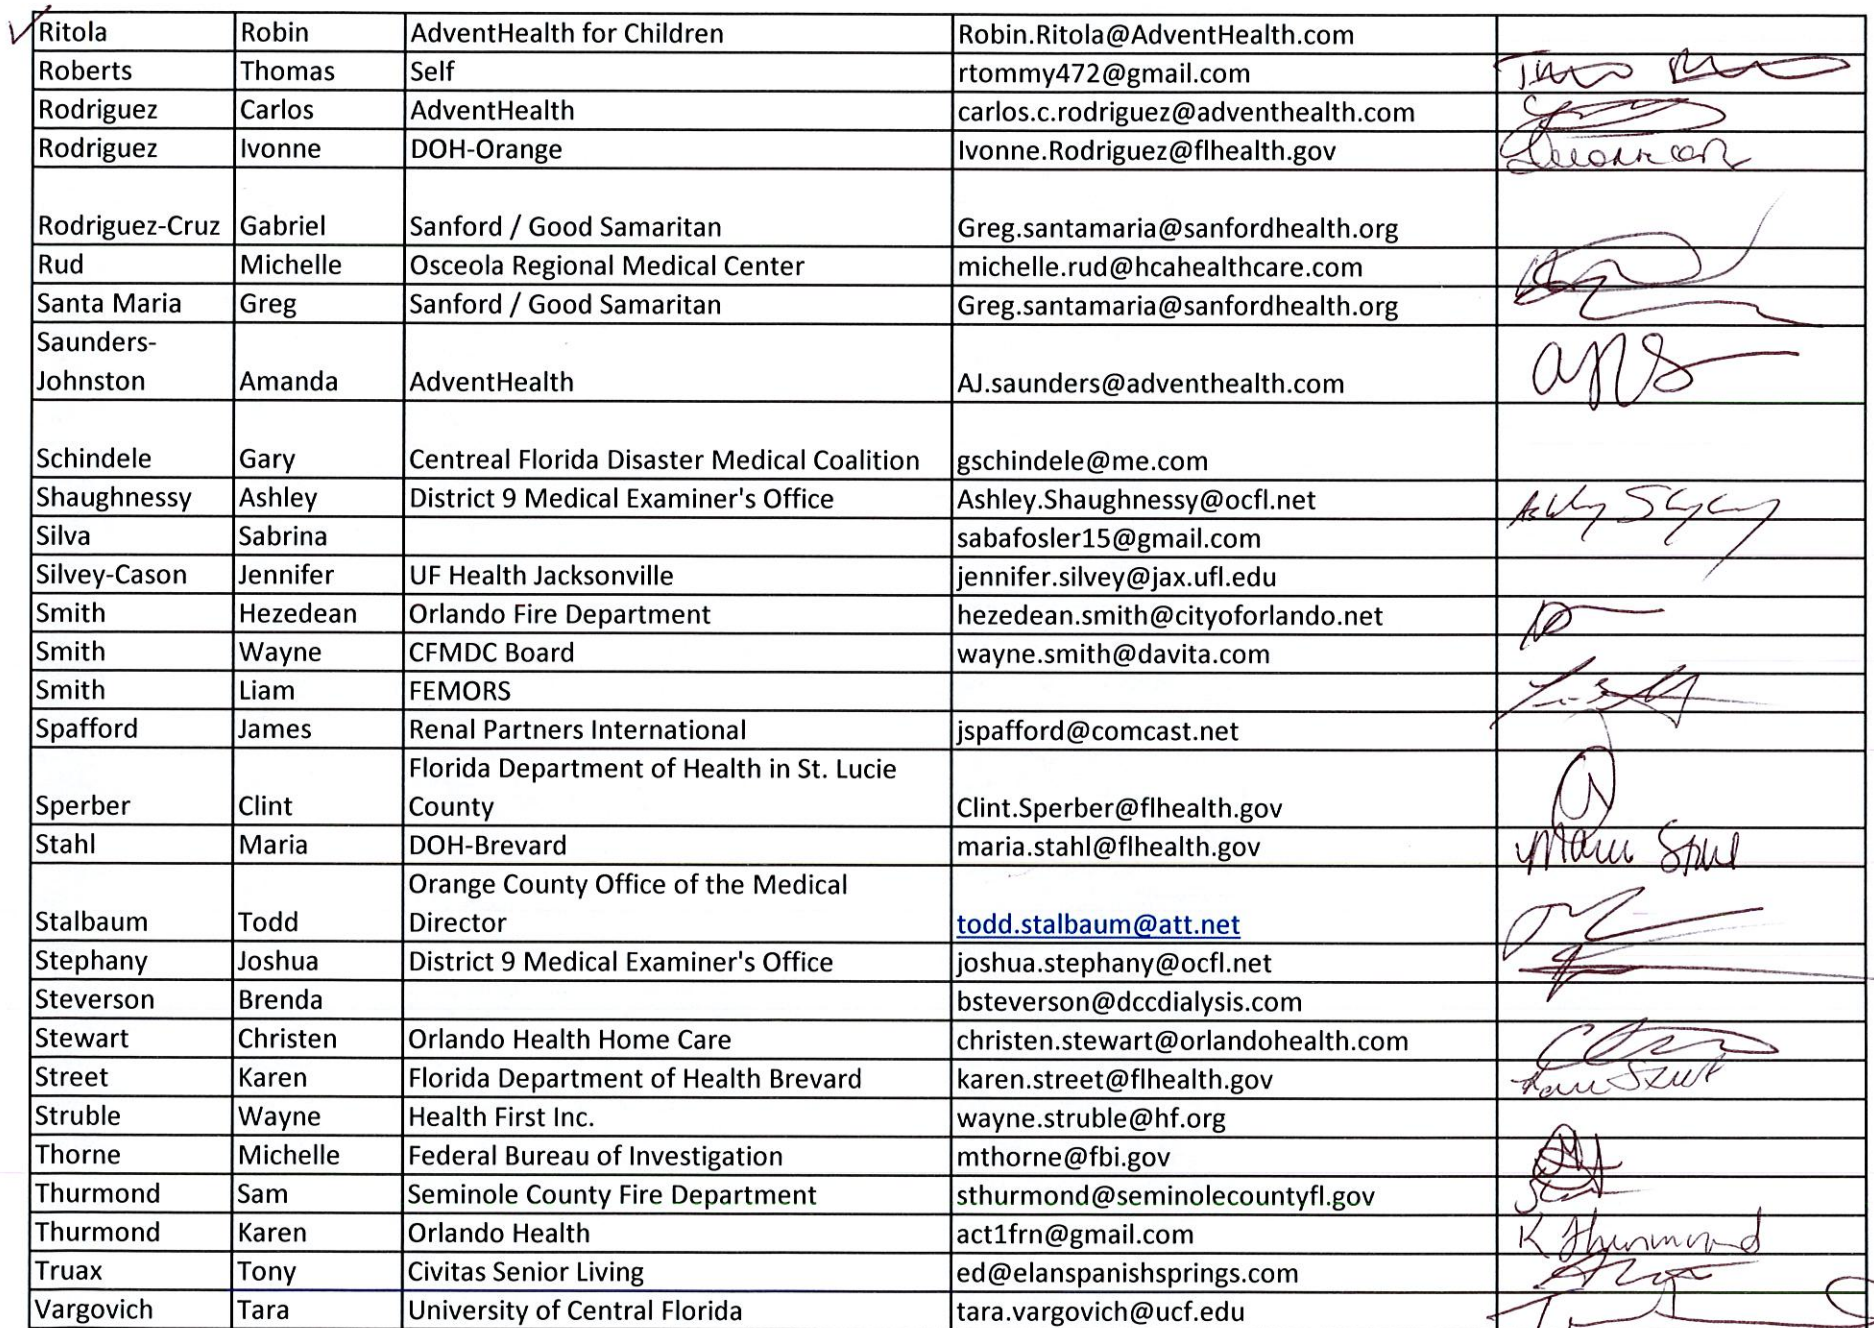 Ritola Robin AdventHealth for Children Robin.Ritola@AdventHealth.com
Roberts Thomas Self rtommy472@gmail.com
Rodriguez Carlos AdventHealth carlos.c.rodriguez@adventhealth.com
Rodriguez Ivonne DOH-Orange Ivonne.Rodriguez@flhealth.gov
Rodriguez-Cruz Gabriel Sanford / Good Samaritan Greg.santamaria@sanfordhealth.org
Rud Michelle Osceola Regional Medical Center michelle.rud@hcahealthcare.com
Santa Maria Greg Sanford / Good Samaritan Greg.santamaria@sanfordhealth.org
Saunders-
Johnston Amanda AdventHealth AJ.saunders@adventhealth.com
Schindele Gary Centreal Florida Disaster Medical Coalition gschindele@me.com
Shaughnessy Ashley District 9 Medical Examiner's Office Ashley.Shaughnessy@ocfl.net
Silva Sabrina sabafosler15@gmail.com
Silvey-Cason Jennifer UF Health Jacksonville jennifer.silvey@jax.ufl.edu
Smith Hezedean Orlando Fire Department hezedean.smith@cityoforlando.net
Smith Wayne CFMDC Board wayne.smith@davita.com
Smith Liam FEMORS
Spafford James Renal Partners International jspafford@comcast.net
Florida Department of Health in St. Lucie
Sperber Clint County Clint.Sperber@flhealth.gov
Stahl Maria DOH-Brevard maria.stahl@flhealth.gov
Orange County Office of the Medical
Stalbaum Todd Director todd.stalbaum@att.net
Stephany Joshua District 9 Medical Examiner's Office joshua.stephany@ocfl.net
Steverson Brenda bsteverson@dccdialysis.com
Stewart Christen Orlando Health Home Care christen.stewart@orlandohealth.com
Street Karen Florida Department of Health Brevard karen.street@flhealth.gov
Struble Wayne Health First Inc. wayne.struble@hf.org
Thorne Michelle Federal Bureau of Investigation mthorne@fbi.gov
Thurmond Sam Seminole County Fire Department sthurmond@seminolecountyfl.gov
Thurmond Karen Orlando Health act1frn@gmail.com K Thurmond
Truax Tony Civitas Senior Living ed@elanspanishsprings.com
Vargovich Tara University of Central Florida tara.vargovich@ucf.edu